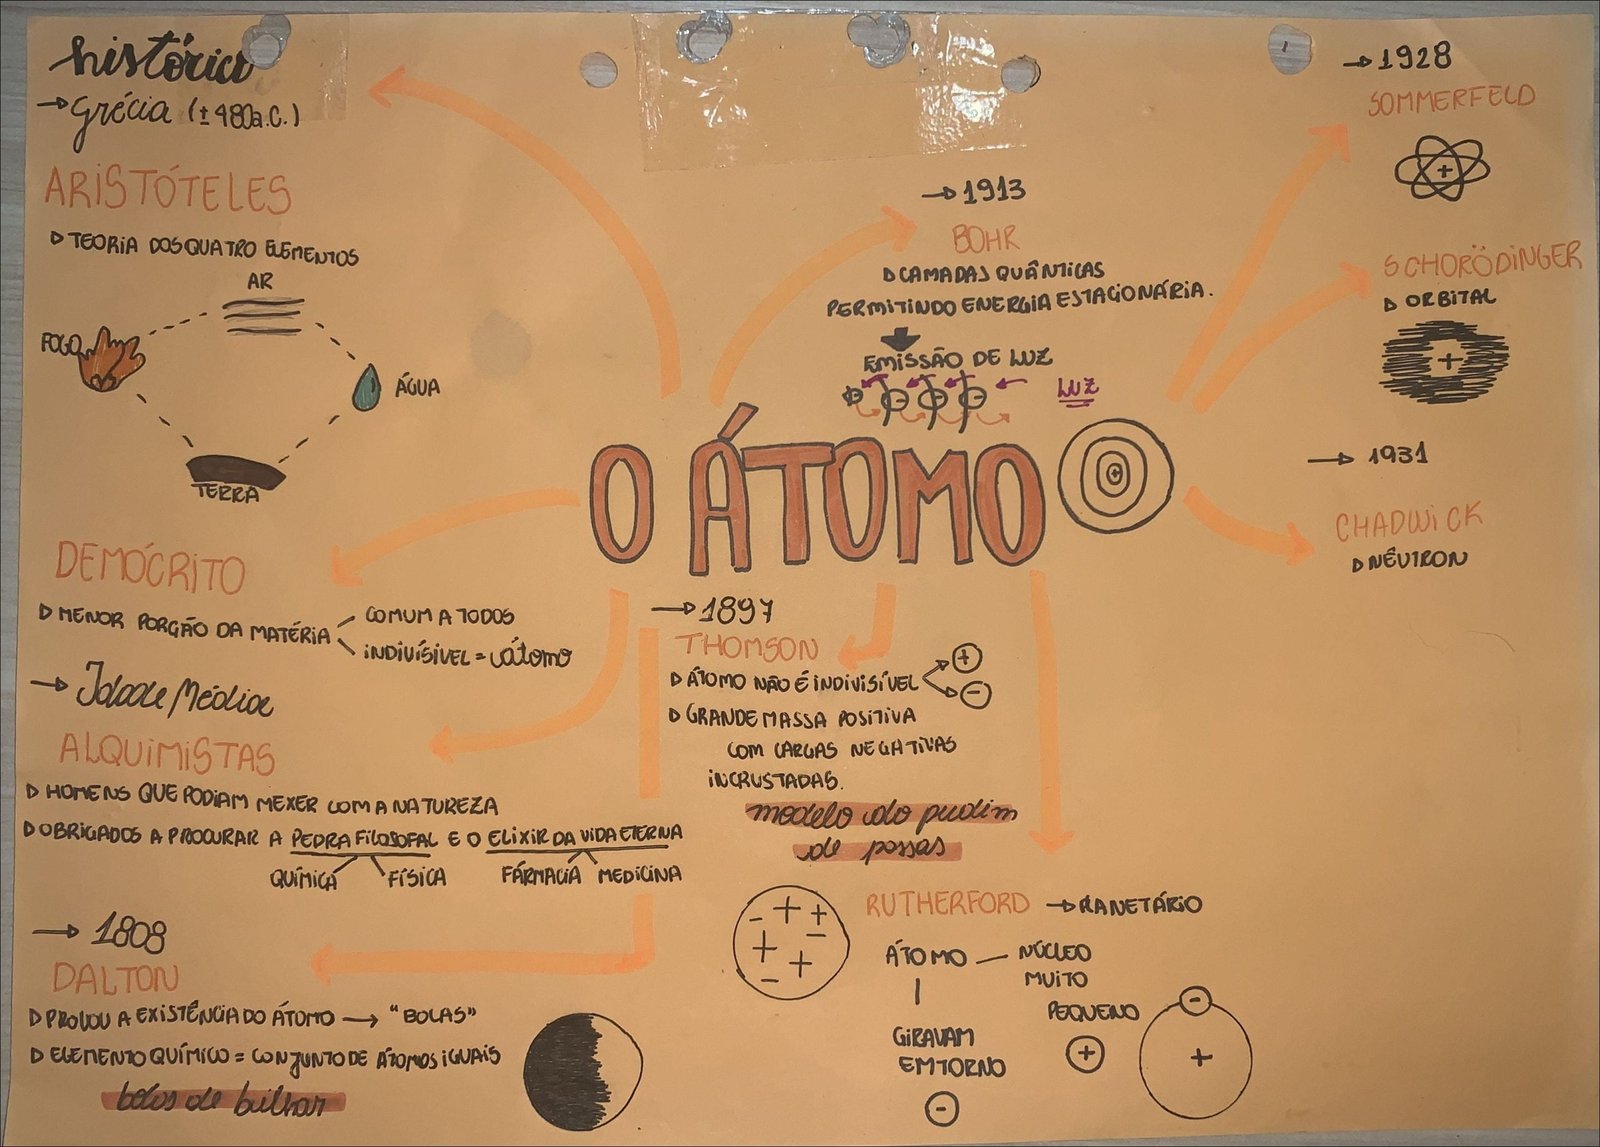 história
→ Grécia (± 480a.C.)
ARISTÓTELES
▷ TEORIA DOS QUATRO ELEMENTOS
AR
FOGO
ÁGUA
TERRA
DEMÓCRITO
▷ MENOR PORÇÃO DA MATÉRIA
COMUM A TODOS
INDIVÍSIVEL = átomo
→ Idade Média
ALQUIMISTAS
▷ HOMENS QUE PODIAM MEXER COM A NATUREZA
▷ OBRIGADOS A PROCURAR A PEDRA FILOSOFAL E O ELIXIR DA VIDA ETERNA
QUÍMICA FÍSICA FÁRMACIA MEDICINA
→ 1808
DALTON
▷ PROVOU A EXISTÊNCIA DO ÁTOMO → "BOLAS"
▷ ELEMENTO QUÍMICO = CONJUNTO DE ÁTOMOS IGUAIS
bolas de bilhar
O ÁTOMO
+
→ 1913
BOHR
▷ CAMADAS QUÂNTICAS
PERMITINDO ENERGIA ESTACIONÁRIA.
EMISSÃO DE LUZ
LUZ
→ 1897
THOMSON
▷ ÁTOMO NÃO É INDIVISÍVEL
+
-
▷ GRANDE MASSA POSITIVA
COM CARGAS NEGATIVAS
INCRUSTADAS.
modelo do pudim
de passas
- + +
+ -
+
-
RUTHERFORD → PLANETÁRIO
ÁTOMO — NÚCLEO
MUITO
PEQUENO
+
GIRAVAM
EM TORNO
-
-
+
→ 1928
SOMMERFELD
+
SCHORÖDINGER
▷ ORBITAL
+
→ 1931
CHADWICK
▷ NÊUTRON